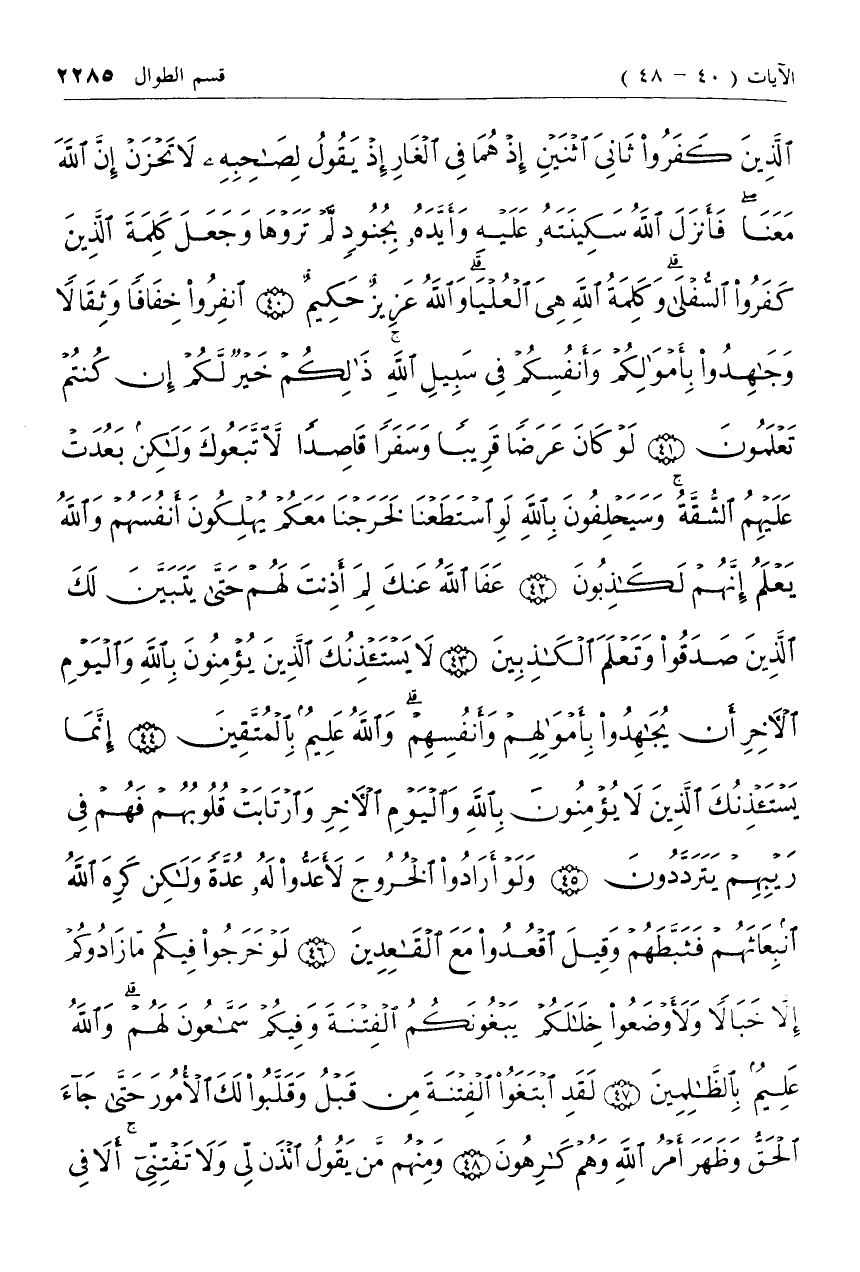 الآيات ( ٤٠ – ٤٨ ) قسم الطوال ٢٢٨٥
ٱلَّذِينَ كَفَرُوا۟ ثَانِىَ ٱثْنَيْنِ إِذْ هُمَا فِى ٱلْغَارِ إِذْ يَقُولُ لِصَـٰحِبِهِۦ لَا تَحْزَنْ إِنَّ ٱللَّهَ
مَعَنَا ۖ فَأَنزَلَ ٱللَّهُ سَكِينَتَهُۥ عَلَيْهِ وَأَيَّدَهُۥ بِجُنُودٍ لَّمْ تَرَوْهَا وَجَعَلَ كَلِمَةَ ٱلَّذِينَ
كَفَرُوا۟ ٱلسُّفْلَىٰ ۗ وَكَلِمَةُ ٱللَّهِ هِىَ ٱلْعُلْيَا ۗ وَٱللَّهُ عَزِيزٌ حَكِيمٌ ﴿٤٠﴾ ٱنفِرُوا۟ خِفَافًا وَثِقَالًا
وَجَـٰهِدُوا۟ بِأَمْوَٰلِكُمْ وَأَنفُسِكُمْ فِى سَبِيلِ ٱللَّهِ ۚ ذَٰلِكُمْ خَيْرٌ لَّكُمْ إِن كُنتُمْ
تَعْلَمُونَ ﴿٤١﴾ لَوْ كَانَ عَرَضًا قَرِيبًا وَسَفَرًا قَاصِدًا لَّٱتَّبَعُوكَ وَلَـٰكِنۢ بَعُدَتْ
عَلَيْهِمُ ٱلشُّقَّةُ ۚ وَسَيَحْلِفُونَ بِٱللَّهِ لَوِ ٱسْتَطَعْنَا لَخَرَجْنَا مَعَكُمْ يُهْلِكُونَ أَنفُسَهُمْ وَٱللَّهُ
يَعْلَمُ إِنَّهُمْ لَكَـٰذِبُونَ ﴿٤٢﴾ عَفَا ٱللَّهُ عَنكَ لِمَ أَذِنتَ لَهُمْ حَتَّىٰ يَتَبَيَّنَ لَكَ
ٱلَّذِينَ صَدَقُوا۟ وَتَعْلَمَ ٱلْكَـٰذِبِينَ ﴿٤٣﴾ لَا يَسْتَـْٔذِنُكَ ٱلَّذِينَ يُؤْمِنُونَ بِٱللَّهِ وَٱلْيَوْمِ
ٱلْـَٔاخِرِ أَن يُجَـٰهِدُوا۟ بِأَمْوَٰلِهِمْ وَأَنفُسِهِمْ ۗ وَٱللَّهُ عَلِيمٌۢ بِٱلْمُتَّقِينَ ﴿٤٤﴾ إِنَّمَا
يَسْتَـْٔذِنُكَ ٱلَّذِينَ لَا يُؤْمِنُونَ بِٱللَّهِ وَٱلْيَوْمِ ٱلْـَٔاخِرِ وَٱرْتَابَتْ قُلُوبُهُمْ فَهُمْ فِى
رَيْبِهِمْ يَتَرَدَّدُونَ ﴿٤٥﴾ وَلَوْ أَرَادُوا۟ ٱلْخُرُوجَ لَأَعَدُّوا۟ لَهُۥ عُدَّةً وَلَـٰكِن كَرِهَ ٱللَّهُ
ٱنۢبِعَاثَهُمْ فَثَبَّطَهُمْ وَقِيلَ ٱقْعُدُوا۟ مَعَ ٱلْقَـٰعِدِينَ ﴿٤٦﴾ لَوْ خَرَجُوا۟ فِيكُم مَّا زَادُوكُمْ
إِلَّا خَبَالًا وَلَأَوْضَعُوا۟ خِلَـٰلَكُمْ يَبْغُونَكُمُ ٱلْفِتْنَةَ وَفِيكُمْ سَمَّـٰعُونَ لَهُمْ ۗ وَٱللَّهُ
عَلِيمٌۢ بِٱلظَّـٰلِمِينَ ﴿٤٧﴾ لَقَدِ ٱبْتَغَوُا۟ ٱلْفِتْنَةَ مِن قَبْلُ وَقَلَّبُوا۟ لَكَ ٱلْأُمُورَ حَتَّىٰ جَآءَ
ٱلْحَقُّ وَظَهَرَ أَمْرُ ٱللَّهِ وَهُمْ كَـٰرِهُونَ ﴿٤٨﴾ وَمِنْهُم مَّن يَقُولُ ٱئْذَن لِّى وَلَا تَفْتِنِّىٓ ۚ أَلَا فِى